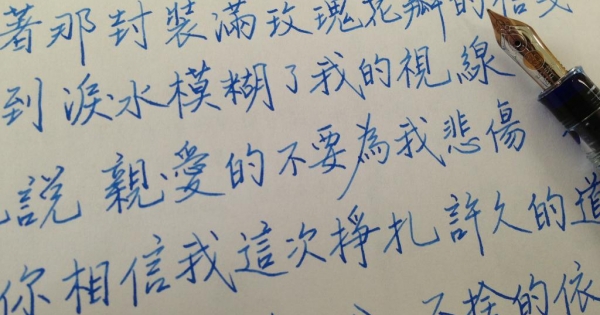 著那封裝滿玫瑰花瓣的信
到淚水模糊了我的視線
說 親愛的不要為我悲傷
你相信我這次掙扎許久的道
不捨的依